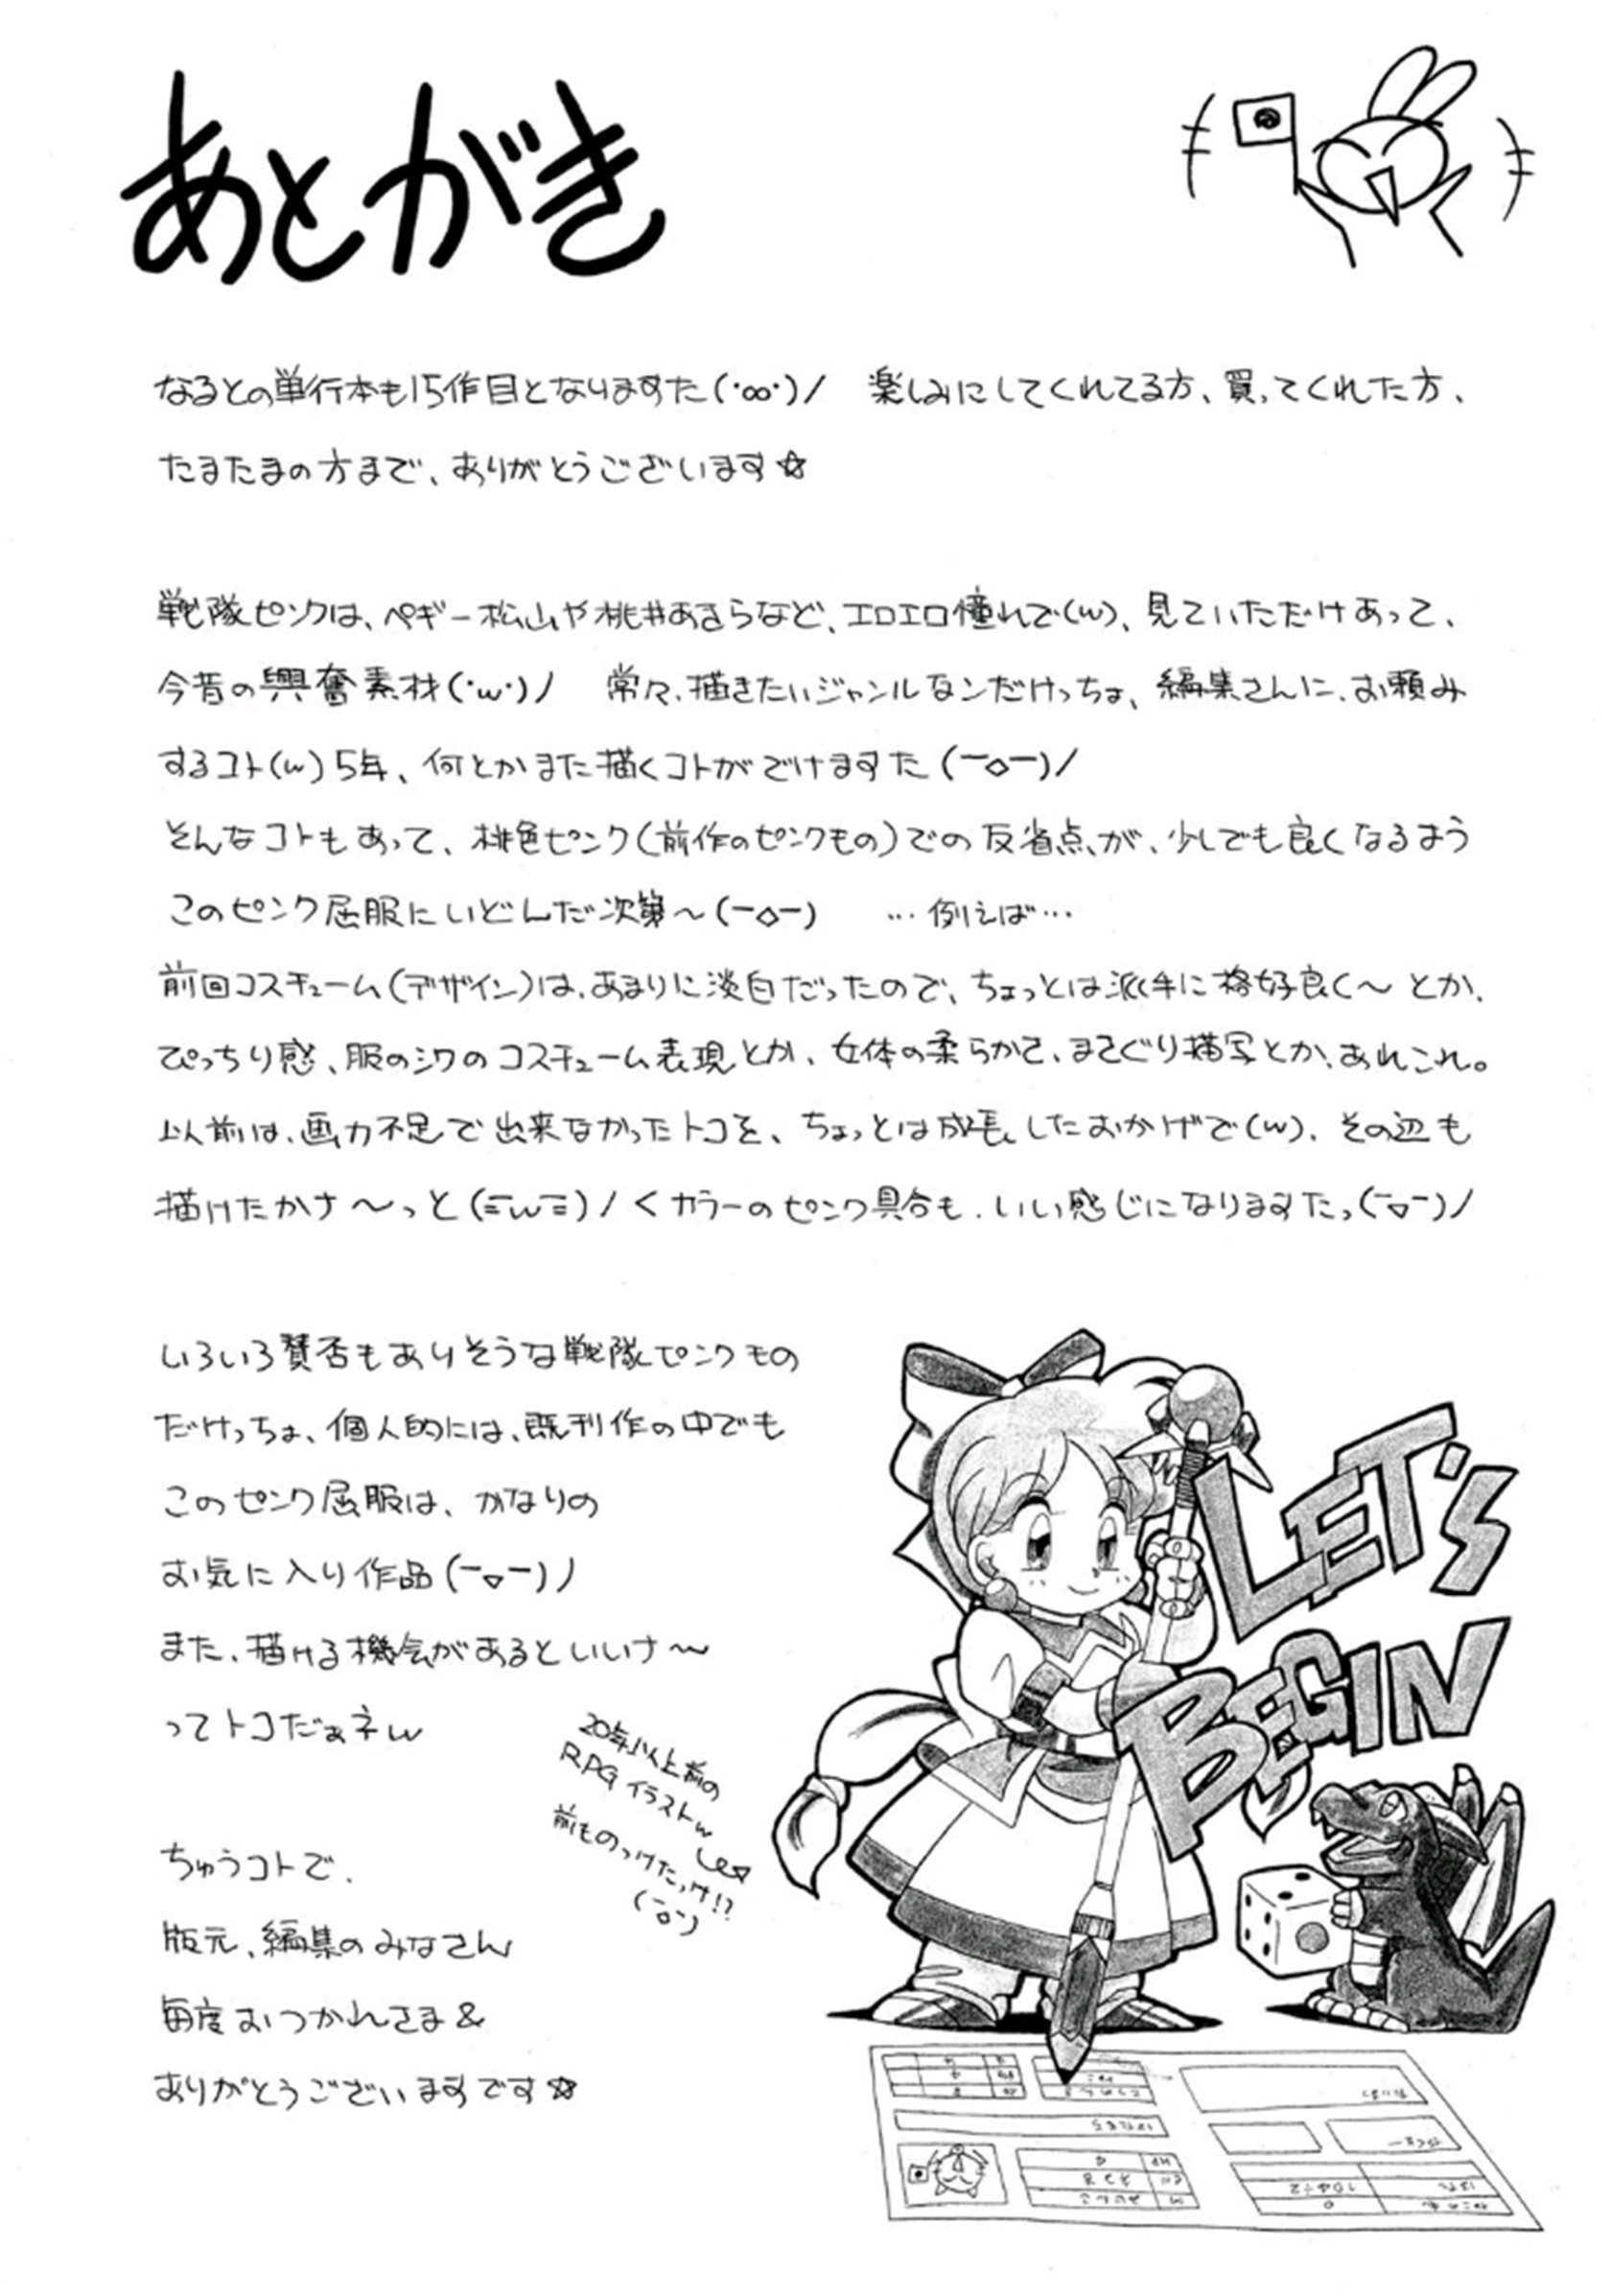 あとがき
なるとの単行本も15作目となりますた(・∞・)/　楽しみにしてくれてる方、買ってくれた方、
たまたまの方まで、ありがとうございます☆
戦隊ピンクは、ペギー松山や桃井あきらなど、エロエロ憧れで(w)、見ていただけあって、
今昔の興奮素材(・w・)ノ　常々、描きたいジャンルなンだけっちょ、編集さんに、お頼み
するコト(w)5年、何とかまた描くコトがでけますた(￣◇￣)/
そんなコトもあって、桃色ピンク(前作のピンクもの)での反省点が、少しでも良くなるよう
このピンク屈服にいどんだ次第〜(￣◇￣)　…例えば…
前回コスチューム(デザイン)は、あまりに淡白だったので、ちょっとは派手に格好良く〜とか、
ぴっちり感、服のシワのコスチューム表現とか、女体の柔らかさ、まさぐり描写とか、あれこれ。
以前は、画力不足で出来なかったトコを、ちょっとは成長したおかげで(w)、その辺も
描けたかナ〜っと(=w=)/<カラーのピンク具合も、いい感じになりますたっ(￣▽￣)/
いろいろ賛否もありそうな戦隊ピンクもの
だけっちょ、個人的には、既刊作の中でも
このピンク屈服は、かなりの
お気に入り作品(￣▽￣)ノ
また、描ける機会があるといいナ〜
ってトコだぁネw
20年以上前の
RPGイラストw
前ものっけたっけ!?
(￣ロ￣)
ちゅうコトで、
版元、編集のみなさん
毎度おつかれさま&
ありがとうございますです☆
LET'S
BEGIN